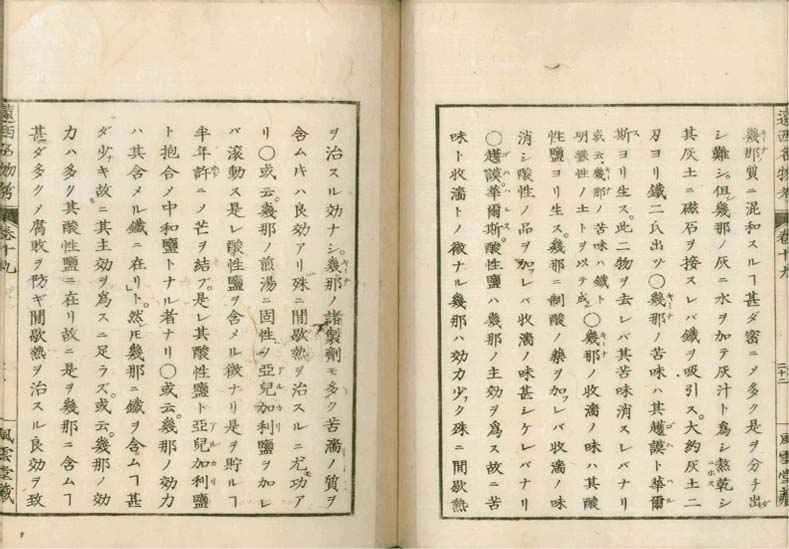 遠西名物考 卷十九 二十二 風雲堂藏
幾那質ニ混和スルヿ甚ダ密ニノ多ク是ヲ分チ出
シ難シ。但シ幾那ノ灰ニ水ヲ加テ灰汁ト爲シ𤎅乾シ
其灰土ニ磁石ヲ接スレバ鐵ヲ吸引ス。大約灰土二
刄ヨリ鐵二氏出ヅ〇幾那ノ苦味ハ其越謨ト華爾
斯ヨリ生ス。此二物ヲ去レバ其苦味消スレバナリ
或云。幾那ノ苦味ハ鐵ト
明礬性ノ土トヲ以テ成ル
〇幾那ノ收濇ノ味ハ其酸
性鹽ヨリ生ス。幾那ニ制酸ノ藥ヲ加フレバ收濇ノ味
消シ酸性ノ品ヲ加フレバ收濇ノ味甚シケレバナリ
〇越謨華爾斯酸性鹽ハ幾那ノ主効ヲ爲ス故ニ苦
味ト收濇トノ微ナル幾那ハ効力少ナク殊ニ間歇熱
ヲ治スル効ナシ。幾那ノ諸製劑モ多ク苦濇ノ質ヲ
含ムキハ良効アリ殊ニ間歇熱ヲ治スルニ尤モ功ア
リ〇或云。幾那ノ煎湯ニ固性ノ亞兒加利鹽ヲ加レ
バ滾動ス是レ酸性鹽ヲ含メル徴ナリ是ヲ貯ルヿ
半年許ニノ芒ヲ結ブ。是レ其酸性鹽ト亞兒加利鹽
ト抱合ノ中和鹽トナル者ナリ〇或云。幾那ノ効力
ハ其含メル鐵ニ在リト。然𪜈幾那ニ鐵ヲ含ムヿ甚
ダ少ナキ故ニ其主効ヲ爲スニ足ラズ。或云。幾那ノ効
力ハ多ク其酸性鹽ニ在リ故ニ是ヲ幾那ニ含ムヿ
甚ダ多クノ腐敗ヲ防ギ間歇熱ヲ治スル良効ヲ致
遠西名物考 卷十九 風雲堂藏